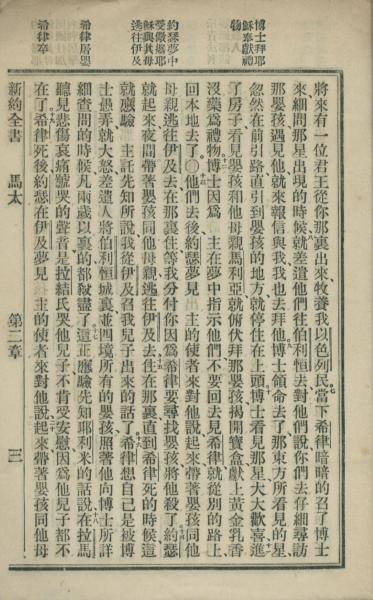 博士拜耶
穌奉獻禮
物
約瑟夢中
受儆攜耶
穌與其母
逃往伊及
希律居嬰
希律卒
將來有一位君王從你那裏出來牧養我以色列民七當下希律暗暗的召了博士
來細問那星出現的時候八就差遣他們往伯利恒去對他們說你們去仔細尋訪
那嬰孩遇見他就來報信與我我也去拜他九博士領命去了那東方所看見的星
忽然在前引路直引到嬰孩的地方就停住在上頭十博士看見那星大大歡喜十一進
了房子看見嬰孩和他母親馬利亞就俯伏拜那嬰孩揭開寶盒獻上黃金乳香
沒藥爲禮物十二博士因爲 主在夢中指示他們不要回去見希律就從別的路上
回本地去了○十三他們去後約瑟夢見 主的使者來對他說起來帶著嬰孩同他
母親逃往伊及去在那裏住等我分付你因爲希律要尋找嬰孩將他殺了十四約瑟
就起來夜間帶著嬰孩同他母親逃往伊及去十五住在那裏直到希律死的時候這
就應驗 主託先知所說我從伊及召我兒子出來的話了十六希律想自己是被博
士愚弄就大怒差遣人將伯利恒城裏並四境所有的嬰孩照著他向博士所詳
細查問的時候凡兩歲以裏的都殺盡了十七這正應驗先知耶利米的話說十八在拉馬
聽見悲傷哀痛號哭的聲音是拉結氏哭他兒子不肯受安慰因爲他兒子都不
在了十九希律死後約瑟在伊及夢見 主的使者來對他說二十起來帶著嬰孩同他母
新約全書 馬太 第二章 三